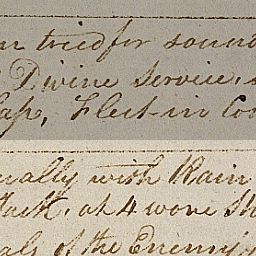 tried for sound
Divine Service,
Fleet in Co
ually with Rain
Tack, at 4 wore Sh
als of the Enemy's